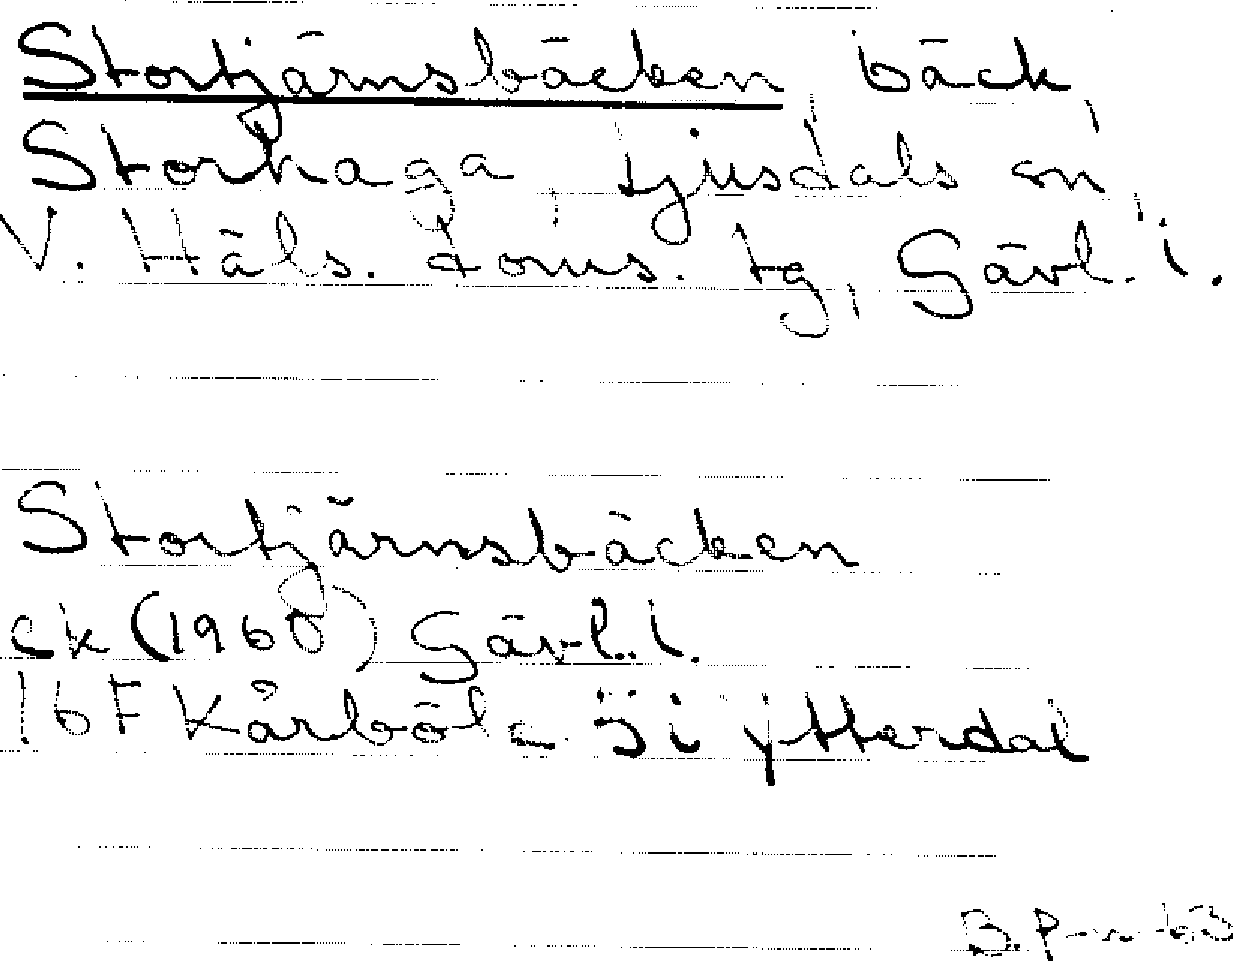 Stortjärnsbäcken, bäck,
Storhaga, Ljusdals sn,
V. Häls. doms. tg, Gävl. l.
Stortjärnsbäcken
ck (1960) Gävl. l.
16F Kårböle 5i Ytterdal
B. P-n -63